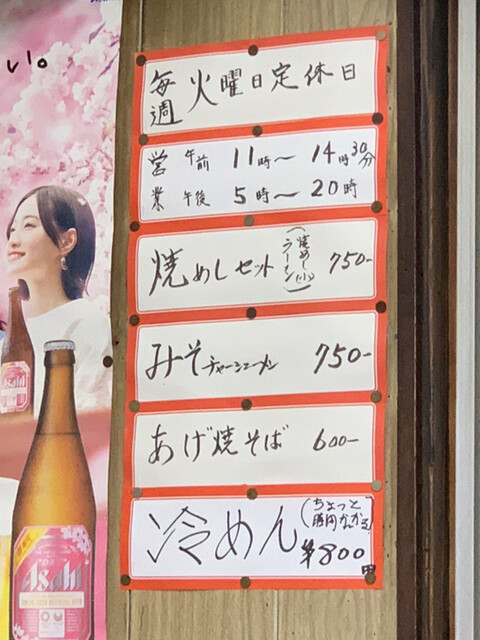 い。
毎週 火曜日定休日
営業 午前 11時～14時30分
午後 5時～20時
焼めしセット (焼めし(小) ラーメン) 750-
みそチャーシューメン 750-
あげ焼そば 600-
冷めん (ちょっと
¥800円
Asahi
Asahi